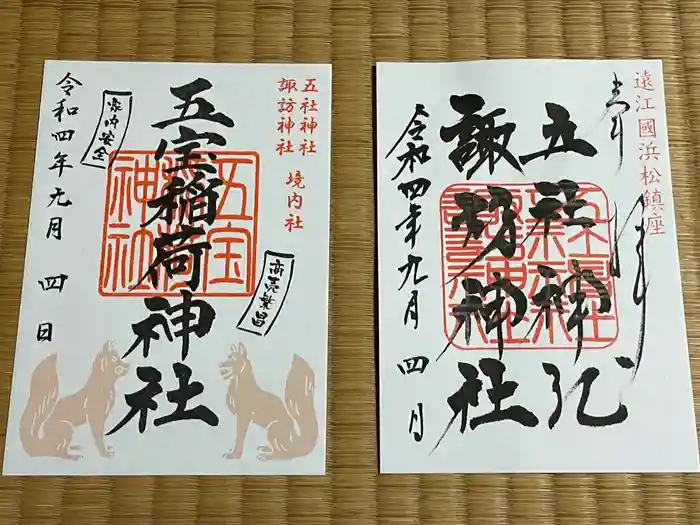 遠江國浜松鎮座
奉拝
五社神社
諏訪神社
令和四年九月四日
五社神社
諏訪神社
境内社
五宝稲荷神社
五宝
神社
商売繁昌
家内安全
令和四年九月四日